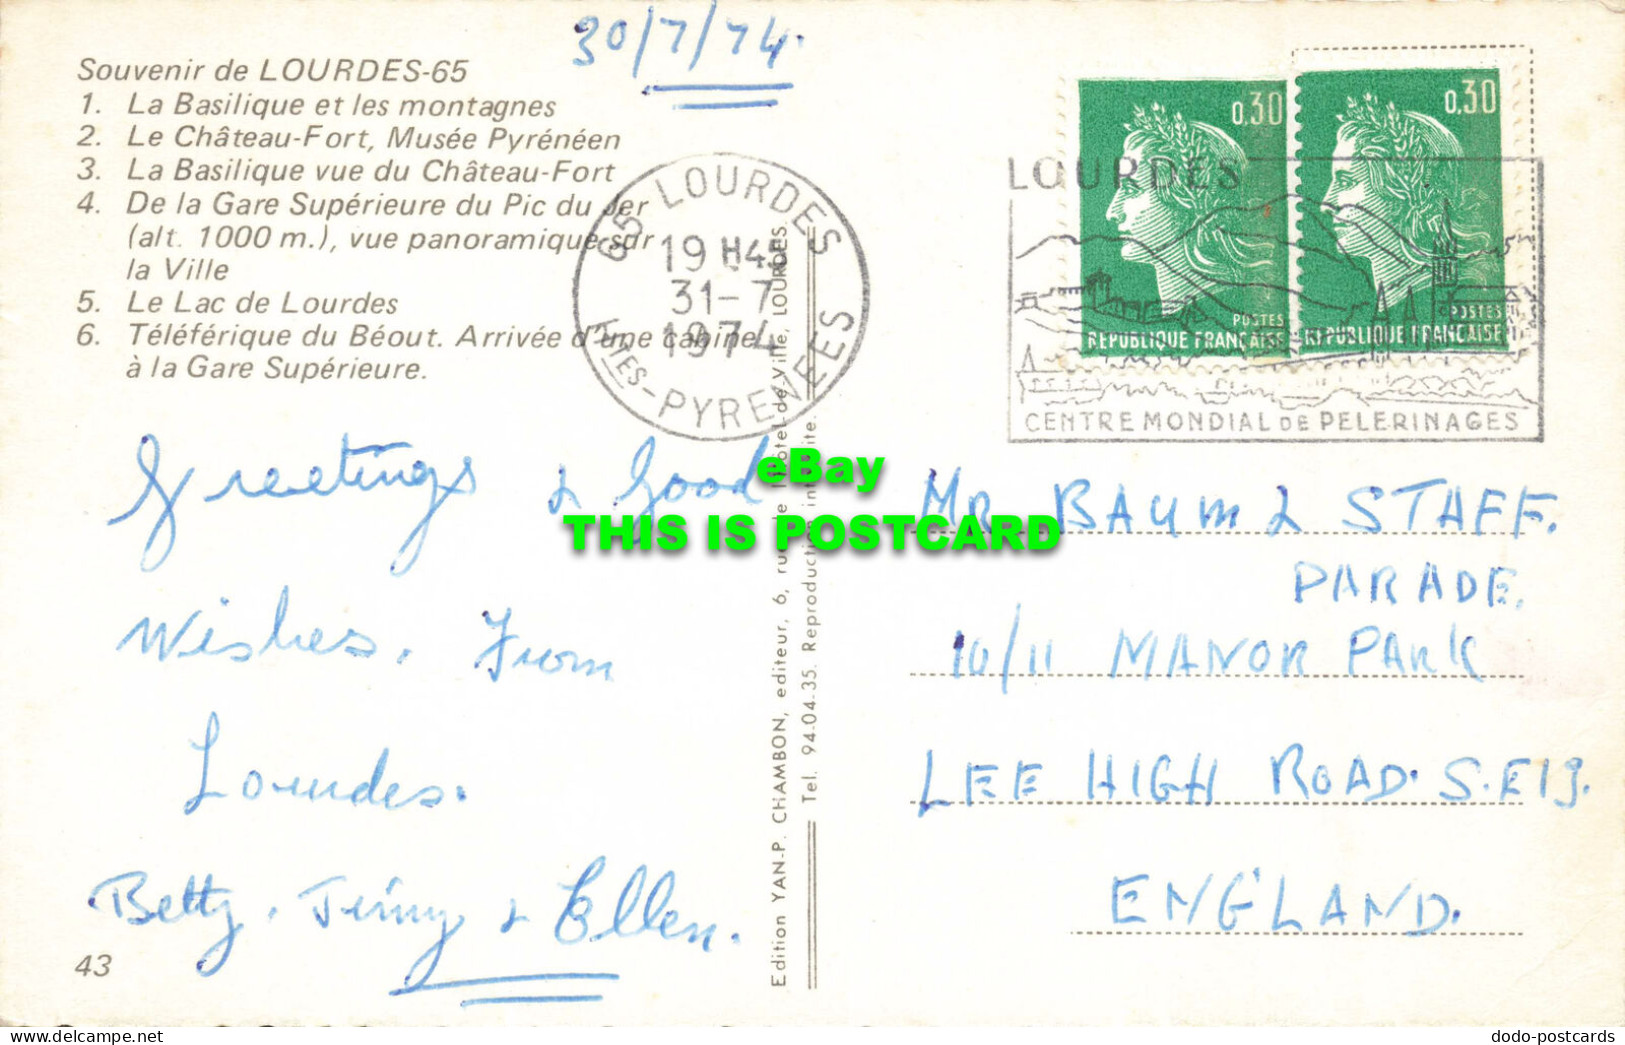 30/7/74.
Souvenir de LOURDES-65
1. La Basilique et les montagnes
2. Le Château-Fort, Musée Pyrénéen
3. La Basilique vue du Château-Fort
4. De la Gare Supérieure du Pic du Jer
(alt. 1000 m.), vue panoramique sur
la Ville
5. Le Lac de Lourdes
6. Téléférique du Béout. Arrivée d'une cabine
à la Gare Supérieure.
65 LOURDES
19 H45
31-7
1974
HTES-PYRENEES
0,30
POSTES
REPUBLIQUE FRANCAISE
0,30
POSTES
REPUBLIQUE FRANCAISE
LOURDES
CENTRE MONDIAL DE PELERINAGES
Greetings & Good
Wishes. From
Lourdes.
Betty, Jinny & Ellen.
43
Edition YAN-P. CHAMBON, editeur, 6, rue de l'Hôtel-de-Ville, LOURDES.
Tel. 94-04-35. Reproduction interdite.
MR BAUM & STAFF.
PARADE.
10/11 MANOR PARK
LEE HIGH ROAD. S.E13.
ENGLAND.
eBay
THIS IS POSTCARD
dodo-postcards